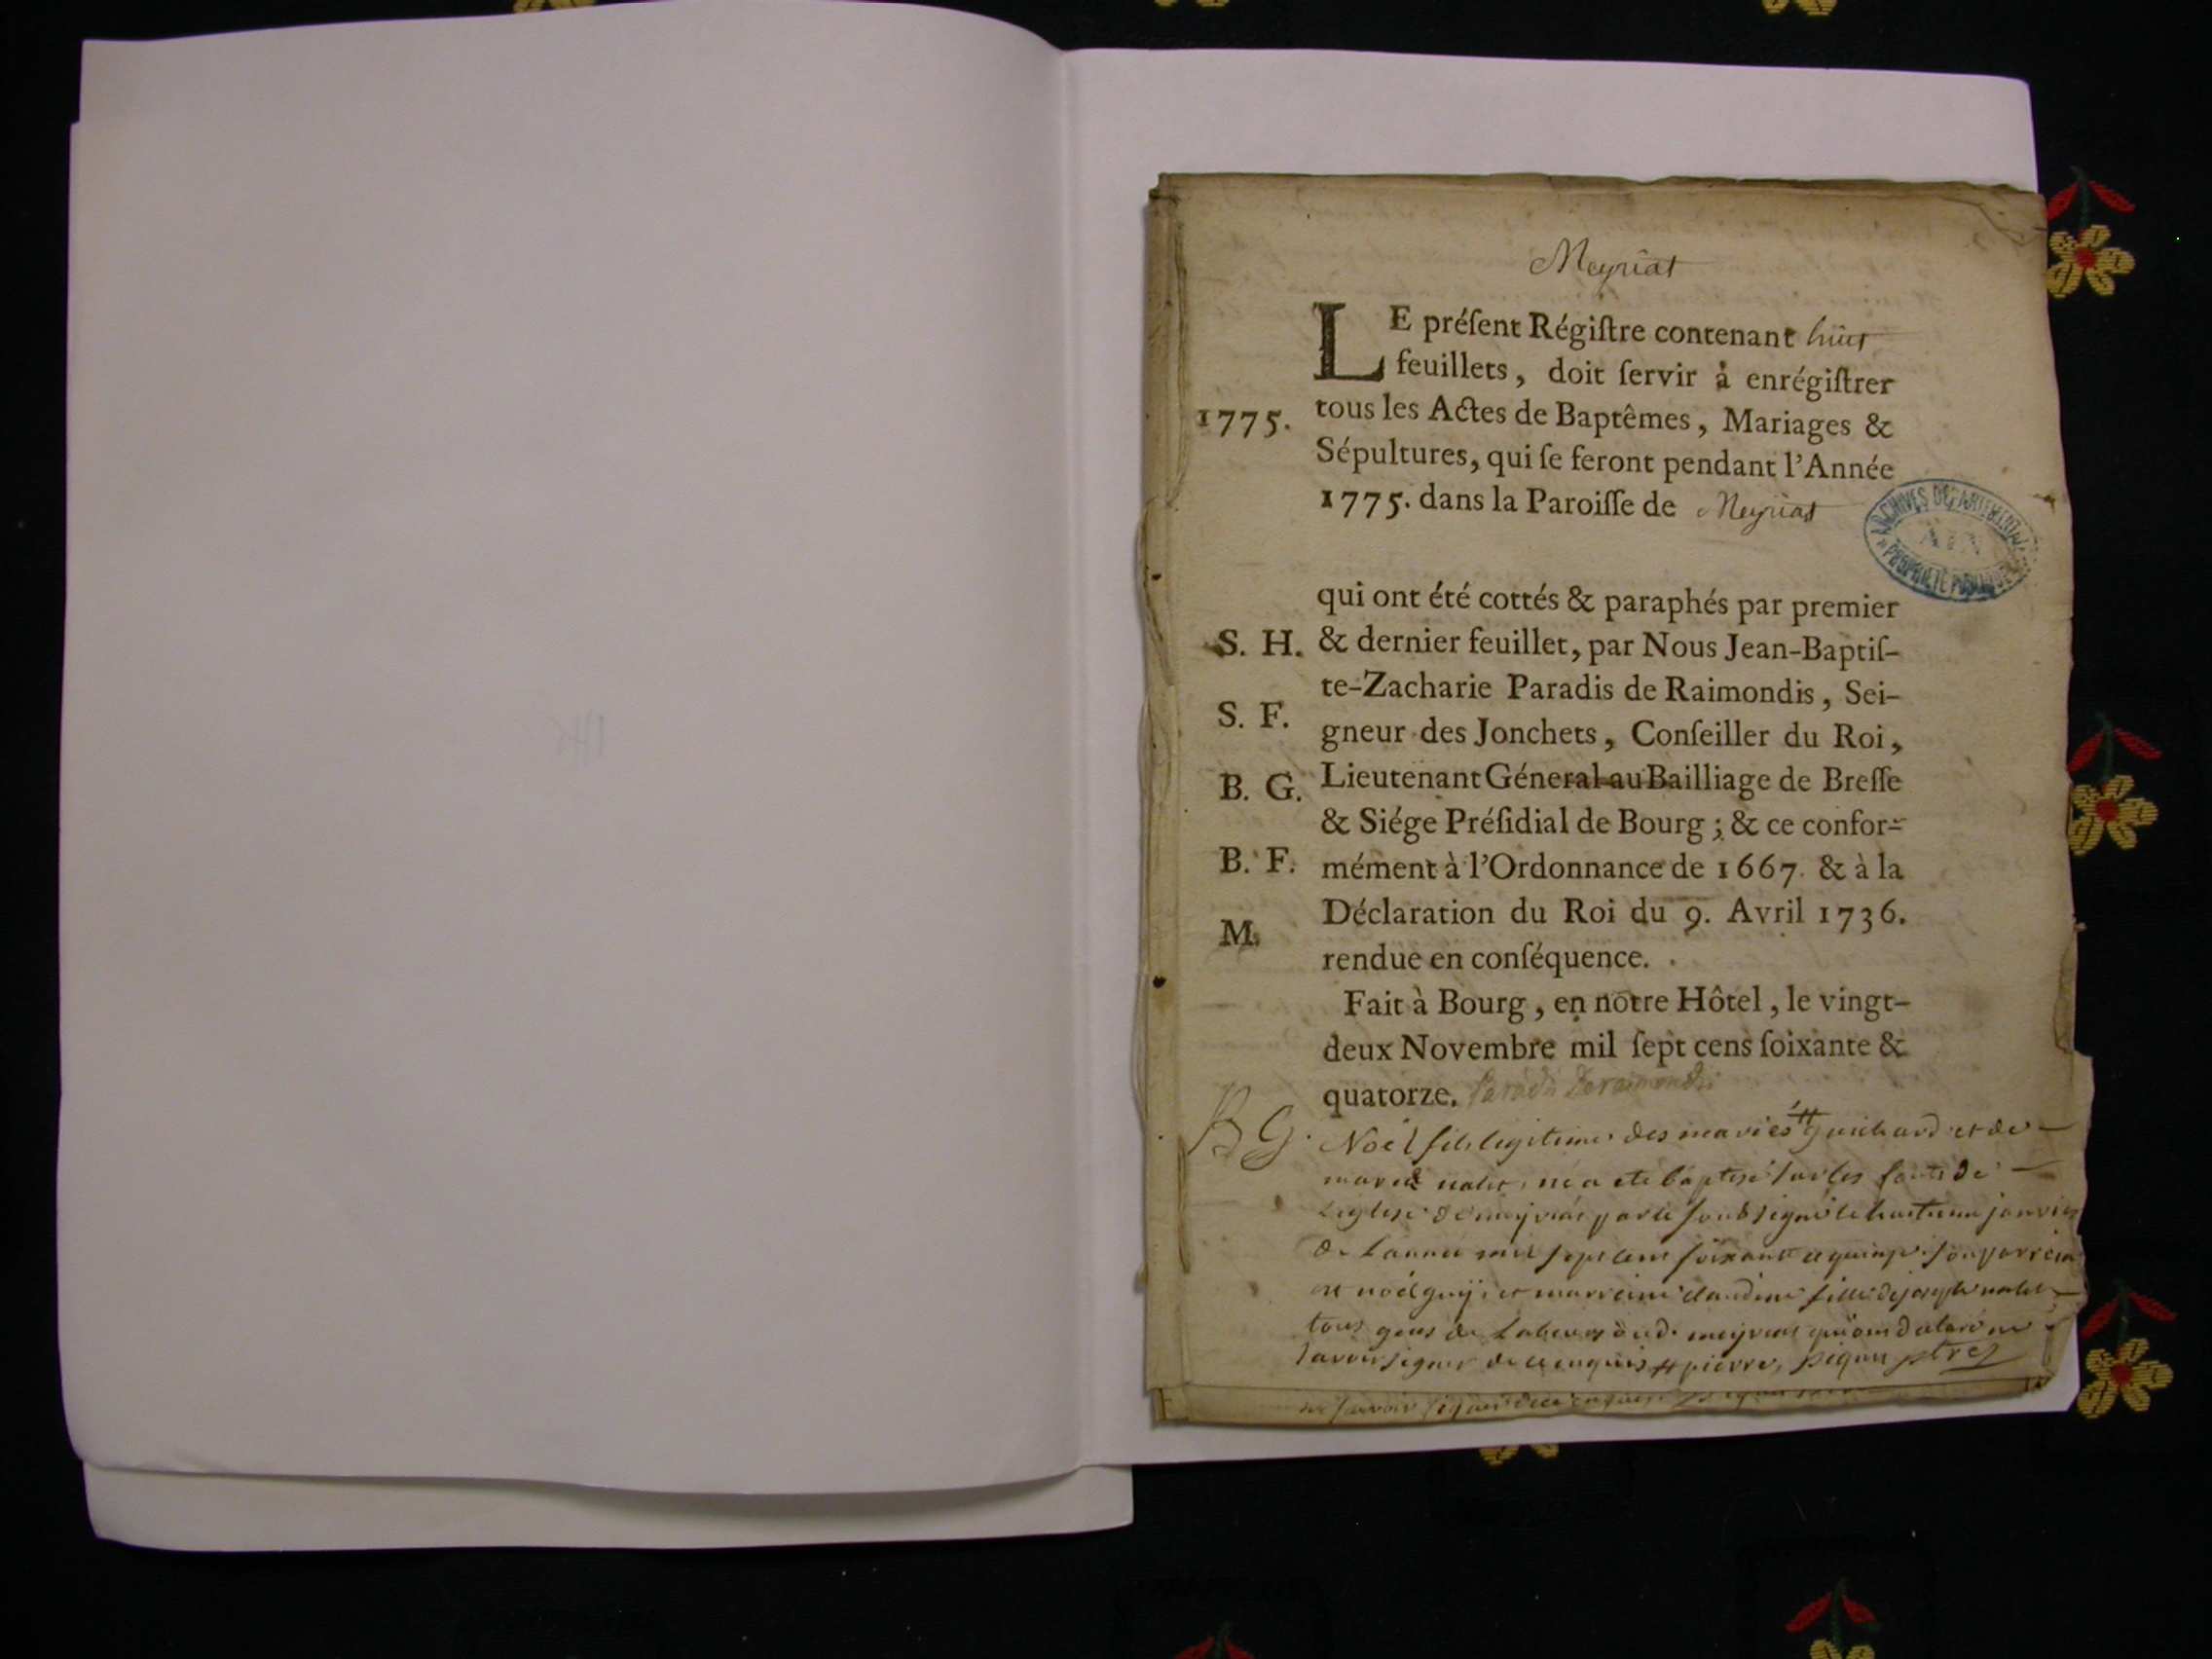 Meyriat
LE préſent Régiſtre contenant huit
feuillets, doit ſervir à enrégiſtrer
1775. tous les Actes de Baptêmes, Mariages &
Sépultures, qui ſe feront pendant l'Année
1775. dans la Paroiſſe de Meyriat
ARCHIVES DÉPARTEMENTALES
AIN
PROPRIÉTÉ PUBLIQUE
qui ont été cottés & paraphés par premier
S. H. & dernier feuillet, par Nous Jean-Baptiſ-
te-Zacharie Paradis de Raimondis, Sei-
S. F. gneur des Jonchets, Conſeiller du Roi,
B. G. Lieutenant Géneral au Bailliage de Breſſe
& Siége Préſidial de Bourg; & ce confor-
B. F. mément à l'Ordonnance de 1667. & à la
M. Déclaration du Roi du 9. Avril 1736.
rendue en conſéquence.
Fait à Bourg, en notre Hôtel, le vingt-
deux Novembre mil ſept cens ſoixante &
quatorze. Paradis Deraimondis
B G. Noël fils legitime des mariés # Guichard et de
marie nalet, né a ete baptisé sur les fonts de
L'eglise de meyriat par le soubsigné le huitieme janvier
de L'année mil sept cent soixante et quinze. son parrein
est noël guy, et marreine claudine fille de joseph nalet
tous gens de Labeur dud. meyriat qui ont declaré ne
savoir signer de ce enquis # pierre, piquet ptre
ne savoir signer de ce enquis